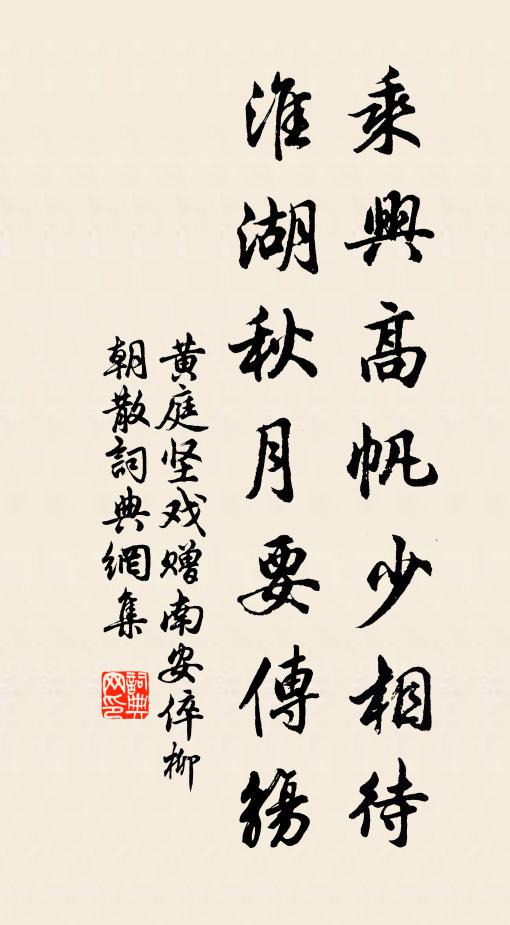 乘興高帆少相待
淮湖秋月要傳觴
黄庭坚戏赠南安倅柳
朝散詞典網集
詞典網印